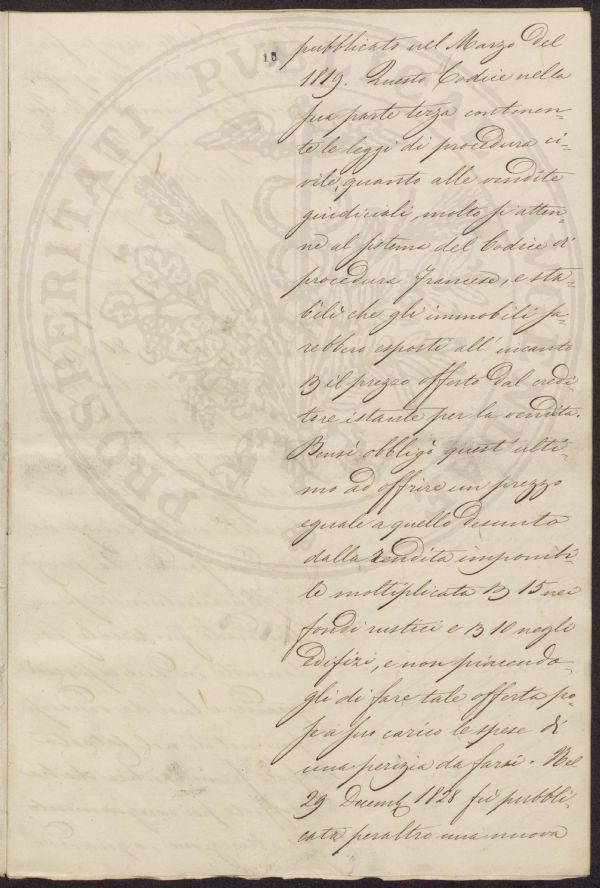 15
pubblicato nel Marzo del
1819. Questo Codice nella
sua parte terza contenen-
te le leggi di procedura ci-
vile, quanto alle vendite
giudiciali, molto s'atten
ne al sistema del Codice di
procedura Francese, e sta-
bilì che gli immobili sa-
rebbero esposti all'incanto
il prezzo offerto dal credi
tore istante per la vendita.
Bensì obbligò quest'ulti-
mo ad offrire un prezzo
eguale a quello desunto
dalla rendita imponibi-
le moltiplicata 15 nei
fondi rustici e 10 negli
Edifizi, e non piacendo-
gli di fare tale offerta po-
se a suo carico le spese di
una perizia da farsi. Nel
29 Decemb 1828 fù pubbli-
cata peraltro una nuova
PROSPERITATI PUBLICAE